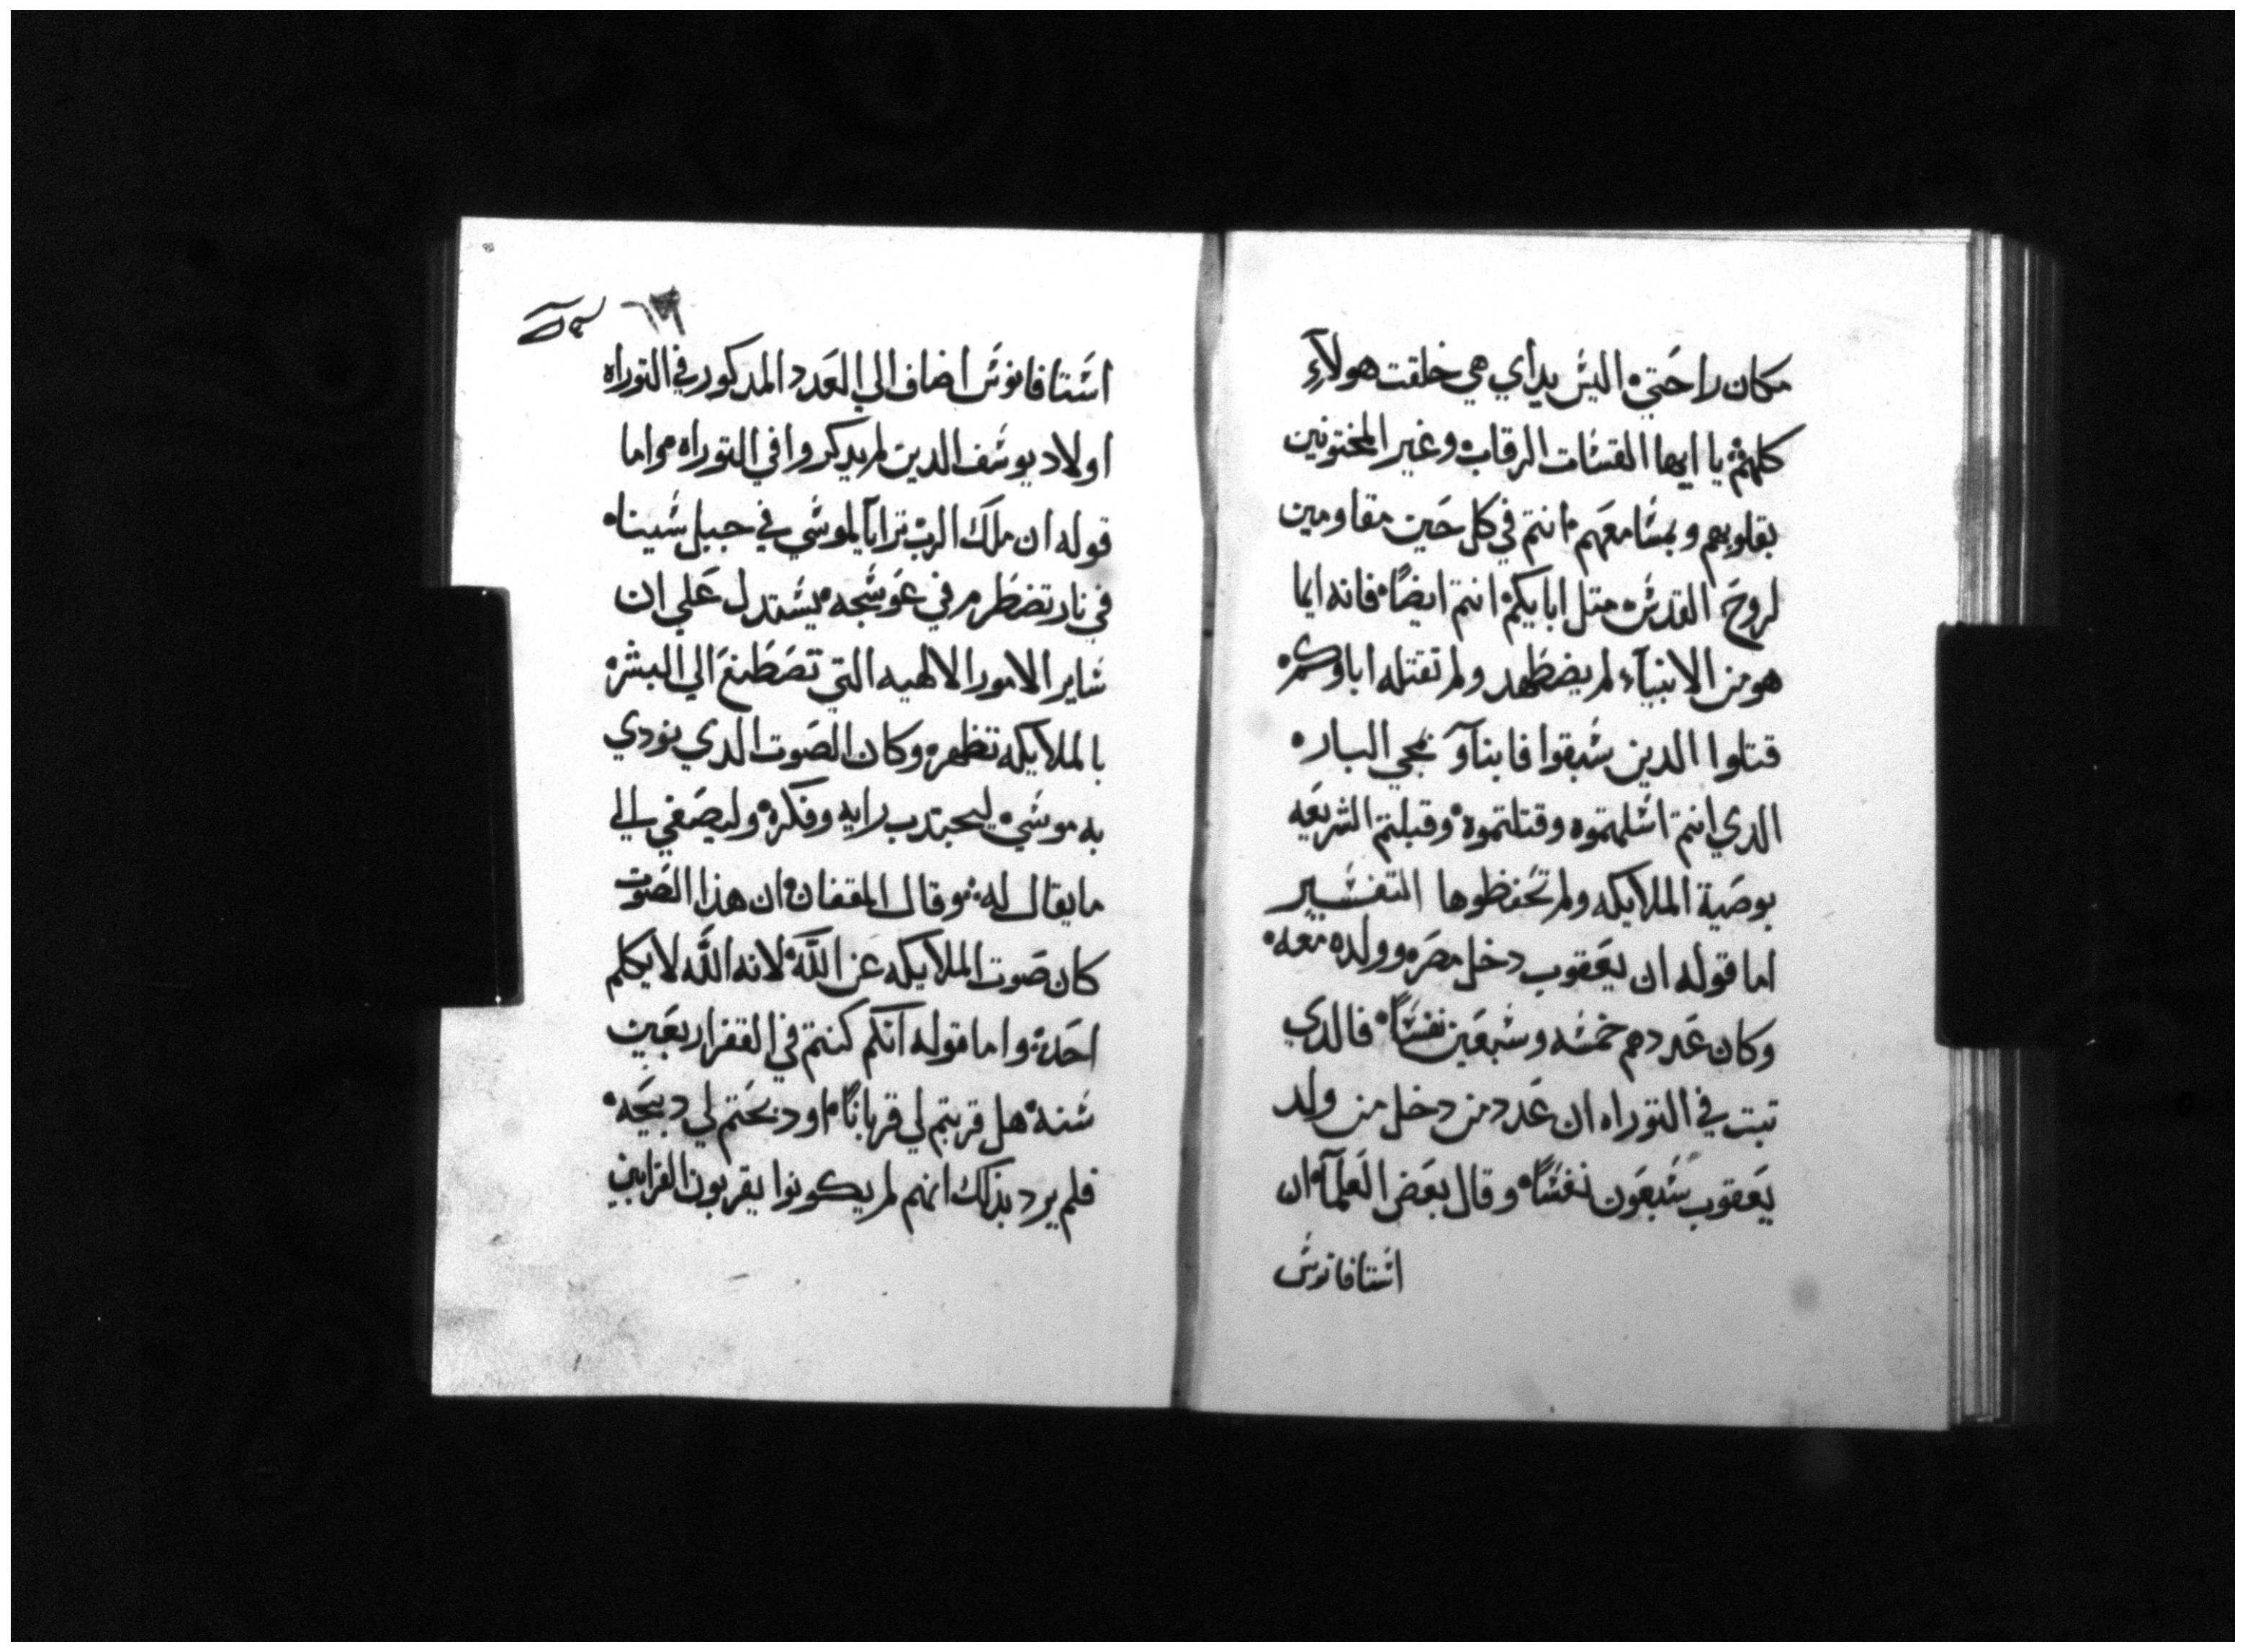 مكان راحتي اليس يداي هي خلقت هولآء
كلهم يا ايها القسات الرقاب وغير المختونين
بقلوبهم وبمسامعهم انتم في كل حين مقاومين
لروح القدس متل ابايكم انتم ايضاً فانه ايما
هو من الانبيآء لم يضطهد ولم تقتله اباوكم
قتلوا الدين سبقوا فانباو بمجي البار
الدي انتم اسلمتموه وقتلتموه وقبلتم الشريعه
بوصية الملايكه ولم تحفظوها التفسير
اما قوله ان يعقوب دخل مصر وولده معه
وكان عددهم خمسه وسبعين نفساً فالدي
تبت في التوراه ان عدد من دخل من ولد
يعقوب سبعون نفساً وقال بعض العلمآ ان
استافانوس
٦٣
استافانوس اضاف الي العدد المدكور في التوراه
اولاد يوسف الدين لم يدكروا في التوراه واما
قوله ان ملك الرب ترايا لموسي في جبل سينا
في نار تضطرم في عوسجه يستدل علي ان
ساير الامور الالهيه التي تصطنع الي البشر
بالملايكه تظهر وكان الصوت الدي نودي
به موسي ليجتدب رايه وفكره وليصغي الي
ما يقال له وقال المقفان ان هذا الصوت
كان صوت الملايكه عن اللَّه لانه اللَّه لا يكلم
احد واما قوله انكم كنتم في القفر اربعين
سنه هل قربتم لي قرباناً او دبحتم لي دبيحه
فلم يرد بذلك انهم لم يكونوا يقربون القرابين